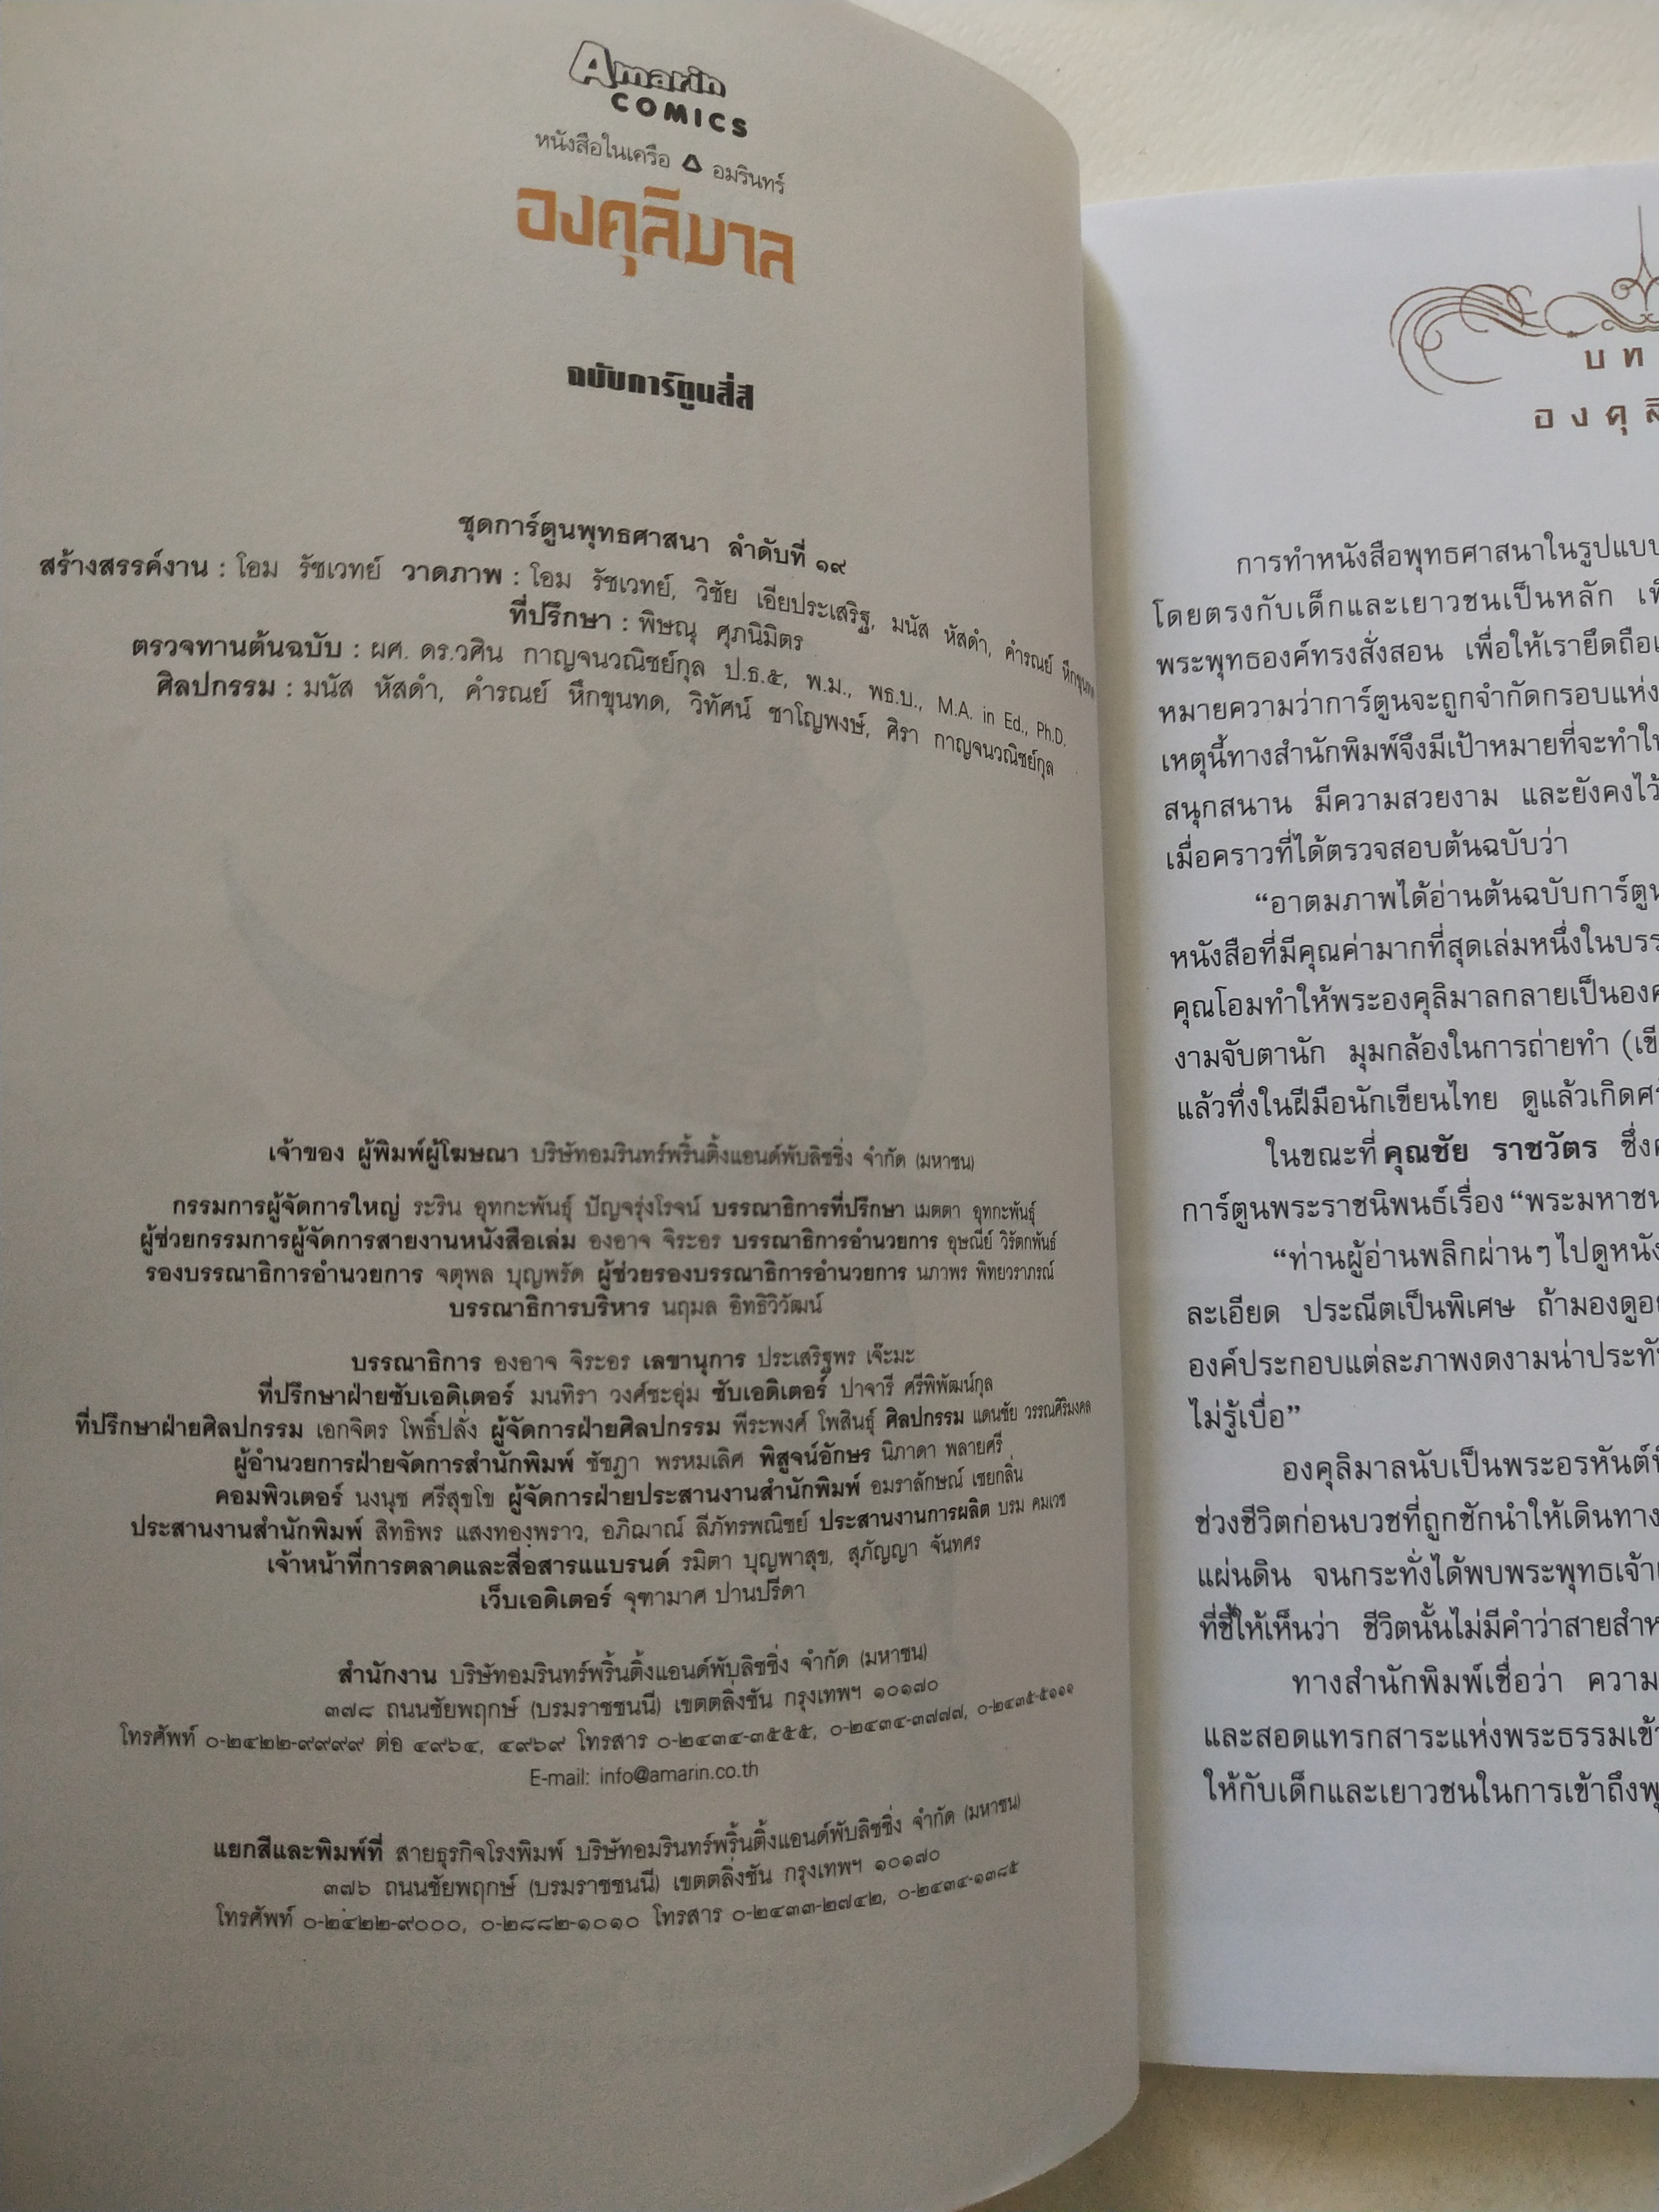 Amarin
COMICS
หนังสือในเครือ อมรินทร์
องคุลิมาล
ฉบับการ์ตูนสี่สี
ชุดการ์ตูนพุทธศาสนา ลำดับที่ ๑๙
สร้างสรรค์งาน : โอม รัชเวทย์ วาดภาพ : โอม รัชเวทย์, วิชัย เอียประเสริฐ, มนัส หัสดำ, คำรณย์ หึกขุนทด
ที่ปรึกษา : พิษณุ ศุภนิมิตร
ตรวจทานต้นฉบับ : ผศ. ดร.วศิน กาญจนวณิชย์กุล ป.ธ.๕, พ.ม., พธ.บ., M.A. in Ed., Ph.D.
ศิลปกรรม : มนัส หัสดำ, คำรณย์ หึกขุนทด, วิทัศน์ ชาโญพงษ์, ศิรา กาญจนวณิชย์กุล
เจ้าของ ผู้พิมพ์ผู้โฆษณา บริษัทอมรินทร์พริ้นติ้งแอนด์พับลิชชิ่ง จำกัด (มหาชน)
กรรมการผู้จัดการใหญ่ ระริน อุทกะพันธุ์ ปัญจรุ่งโรจน์ บรรณาธิการที่ปรึกษา เมตตา อุทกะพันธุ์
ผู้ช่วยกรรมการผู้จัดการสายงานหนังสือเล่ม องอาจ จิระอร บรรณาธิการอำนวยการ อุษณีย์ วิรัตกพันธ์
รองบรรณาธิการอำนวยการ จตุพล บุญพรัด ผู้ช่วยรองบรรณาธิการอำนวยการ นภาพร พิทยวราภรณ์
บรรณาธิการบริหาร นฤมล อิทธิวิวัฒน์
บรรณาธิการ องอาจ จิระอร เลขานุการ ประเสริฐพร เจ๊ะมะ
ที่ปรึกษาฝ่ายซับเอดิเตอร์ มนทิรา วงศ์ชะอุ่ม ซับเอดิเตอร์ ปาจารี ศรีพิพัฒน์กุล
ที่ปรึกษาฝ่ายศิลปกรรม เอกจิตร โพธิ์ปลั่ง ผู้จัดการฝ่ายศิลปกรรม พีระพงศ์ โพสินธุ์ ศิลปกรรม แดนชัย วรรณศิริมงคล
ผู้อำนวยการฝ่ายจัดการสำนักพิมพ์ ชัชฎา พรหมเลิศ พิสูจน์อักษร นิภาดา พลายศรี
คอมพิวเตอร์ นงนุช ศรีสุขโข ผู้จัดการฝ่ายประสานงานสำนักพิมพ์ อมราลักษณ์ เชยกลิ่น
ประสานงานสำนักพิมพ์ สิทธิพร แสงทองพราว, อภิฌาณ์ ลีภัทรพณิชย์ ประสานงานการผลิต บรม คมเวช
เจ้าหน้าที่การตลาดและสื่อสารแบรนด์ รมิตา บุญพาสุข, สุภัญญา จันทศร
เว็บเอดิเตอร์ จุฑามาศ ปานปรีดา
สำนักงาน บริษัทอมรินทร์พริ้นติ้งแอนด์พับลิชชิ่ง จำกัด (มหาชน)
๓๗๘ ถนนชัยพฤกษ์ (บรมราชชนนี) เขตตลิ่งชัน กรุงเทพฯ ๑๐๑๗๐
โทรศัพท์ ๐-๒๔๒๒-๙๙๙๙ ต่อ ๔๙๖๔, ๔๙๖๙ โทรสาร ๐-๒๔๓๔-๓๕๕๕, ๐-๒๔๓๔-๓๗๗๗, ๐-๒๔๓๕-๕๑๑๑
E-mail: info@amarin.co.th
แยกสีและพิมพ์ที่ สายธุรกิจโรงพิมพ์ บริษัทอมรินทร์พริ้นติ้งแอนด์พับลิชชิ่ง จำกัด (มหาชน)
๓๗๖ ถนนชัยพฤกษ์ (บรมราชชนนี) เขตตลิ่งชัน กรุงเทพฯ ๑๐๑๗๐
โทรศัพท์ ๐-๒๔๒๒-๙๐๐๐, ๐-๒๘๘๒-๑๐๑๐ โทรสาร ๐-๒๔๓๓-๒๗๔๒, ๐-๒๔๓๔-๑๓๘๕
บ ท
อ ง คุ ลิ
การทำหนังสือพุทธศาสนาในรูปแบบ
โดยตรงกับเด็กและเยาวชนเป็นหลัก
พระพุทธองค์ทรงสั่งสอน เพื่อให้เรายึดถือ
หมายความว่าการ์ตูนจะถูกจำกัดกรอบแห่ง
เหตุนี้ทางสำนักพิมพ์จึงมีเป้าหมายที่จะทำให้
สนุกสนาน มีความสวยงาม และยังคงไว้
เมื่อคราวที่ได้ตรวจสอบต้นฉบับว่า
“อาตมภาพได้อ่านต้นฉบับการ์ตูน
หนังสือที่มีคุณค่ามากที่สุดเล่มหนึ่งในบรร
คุณโอมทำให้พระองคุลิมาลกลายเป็นองค
งามจับตานัก มุมกล้องในการถ่ายทำ (เขี
แล้วทึ่งในฝีมือนักเขียนไทย ดูแล้วเกิดศร
ในขณะที่ คุณชัย ราชวัตร ซึ่ง
การ์ตูนพระราชนิพนธ์เรื่อง “พระมหาชน
“ท่านผู้อ่านพลิกผ่าน ๆ ไปดูหนัง
ละเอียด ประณีตเป็นพิเศษ ถ้ามองดูอย
องค์ประกอบแต่ละภาพงดงามน่าประทับ
ไม่รู้เบื่อ”
องคุลิมาลนับเป็นพระอรหันต์
ช่วงชีวิตก่อนบวชที่ถูกชักนำให้เดินทาง
แผ่นดิน จนกระทั่งได้พบพระพุทธเจ้า
ที่ชี้ให้เห็นว่า ชีวิตนั้นไม่มีคำว่าสายสำห
ทางสำนักพิมพ์เชื่อว่า ความ
และสอดแทรกสาระแห่งพระธรรมเข้า
ให้กับเด็กและเยาวชนในการเข้าถึงพุ